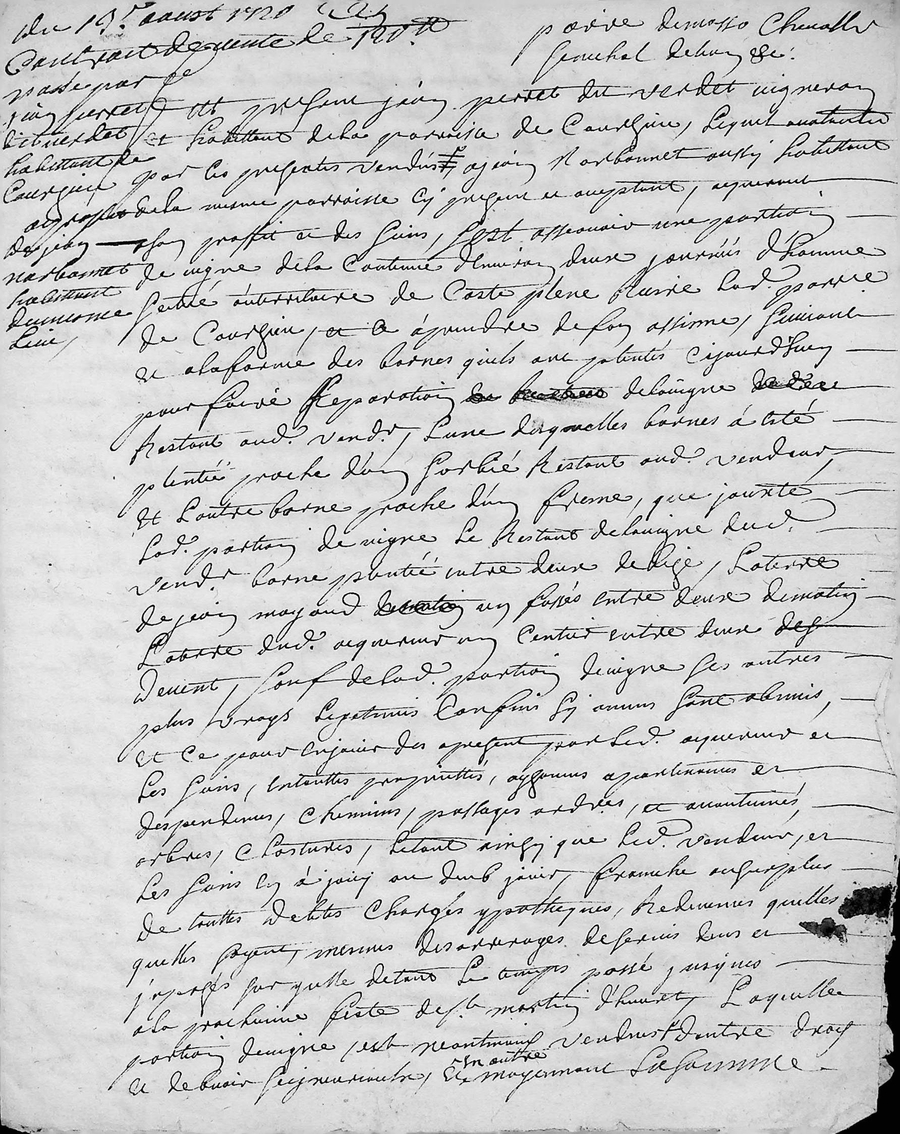 du 19e aoust 1720
Contract de vente de 120 lt
passe par
jean perret
dit verdet
habitant de
Courgieu
au proffit
de jean
narbonnet
habitant
du mesme
Lieu,
pierre demasso Chevallier
senechal de lion &c.
fut present jean perret dit verdet vigneron
et habittant de la parroisse de Courgieu, Lequel
par les presantes vendu a jean Narbonnet aussy habittant
de la mesme parroisse cy present et aceptant, aquereur
son proffit et des siens, sest assavoir une portion
de vigne de la Contenue denviron deux journées dhomme
situé au territoire de Coste plene susd parroisse
de Courgieu, et a prendre de son
et a la forme des bornes quils ont plentés cejourdhuy
pour faire separation de la vigne
Restant aud. vendr, Lune desquelles bornes à esté
plentée proche dun sorbié Restant aud. vendeur,
et Lautre borne proche dun frene, que jouxte
Lad. portion de vigne Le Restant de la vigne dud.
vendr borne plentée entre deux de bize, La terre
de jean mayoud un fossés entre deux de matin
La terre dud. aquereur un sentier entre deux
de vent, sauf de lad. portion de vigne ses autres
plus vrays Legitimes Confins sy aucuns sont obmis,
et Ce pour en jouir des a present par led. aquereur et
Les siens, en touttes proprietés, aysances apartenances et
despendences, Chemins, passages
arbres, Clostures, et tout ainsy que led. vendeur, et
Les siens en à jouy ou deub jouir, franche au surplus
de touttes debtes Charges ypotheques, Redevances quelles
quelles soyent, mesmes des arrerages de servis deus et
pour tout Le temps passé jusques
a la prochaine feste de st martin dhiver, Laquelle
portion de vigne est neantmoins vendue
et debvoir seigneuriaux, En outre moyennant La somme